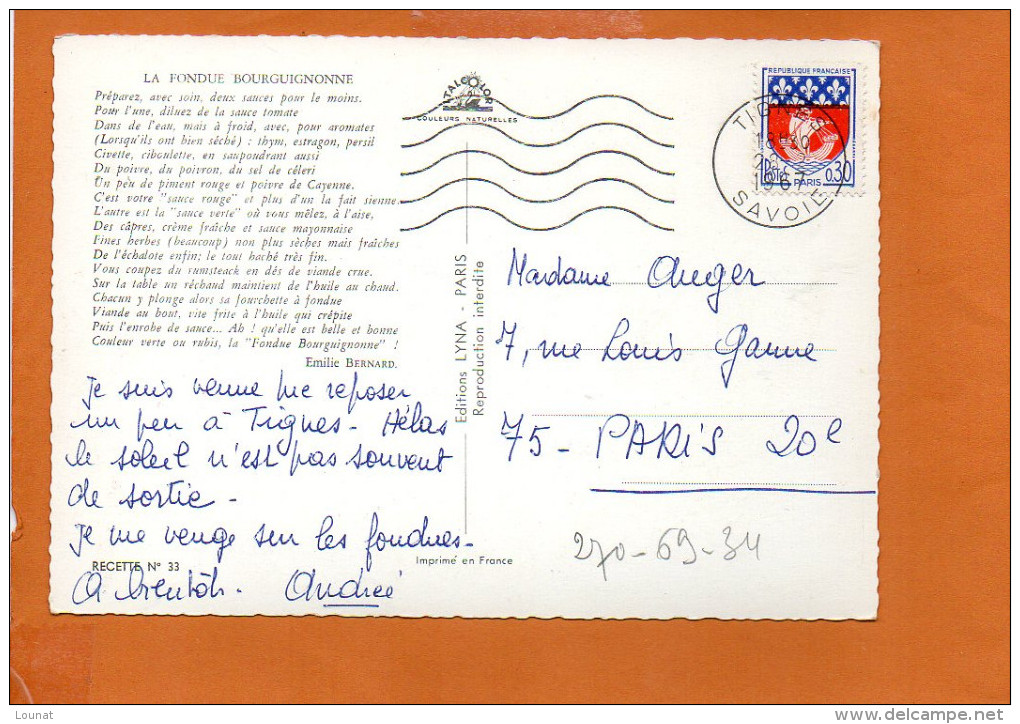 LA FONDUE BOURGUIGNONNE
Préparez, avec soin, deux sauces pour le moins.
Pour l'une, diluez de la sauce tomate
Dans de l'eau, mais à froid, avec, pour aromates
(Lorsqu'ils ont bien séché) : thym, estragon, persil
Civette, ciboulette, en saupoudrant aussi
Du poivre, du poivron, du sel de céleri
Un peu de piment rouge et poivre de Cayenne.
C'est votre "sauce rouge" et plus d'un la fait sienne.
L'autre est la "sauce verte" où vous mêlez, à l'aise,
Des câpres, crème fraîche et sauce mayonnaise
Fines herbes (beaucoup) non plus sèches mais fraîches
De l'échalote enfin; le tout haché très fin.
Vous coupez du rumsteack en dés de viande crue.
Sur la table un réchaud maintient de l'huile au chaud.
Chacun y plonge alors sa fourchette à fondue
Viande au bout, vite frite à l'huile qui crépite
Puis l'enrobe de sauce... Ah ! qu'elle est belle et bonne
Couleur verte ou rubis, la "Fondue Bourguignonne" !
Emilie BERNARD.
Je suis venue me reposer
un peu à Tignes - Hélas
le soleil n'est pas souvent
de sortie -
Je me venge sur les fondues -
RECETTE N° 33
A bientôt. Andrée
ITALCOLOR
COULEURS NATURELLES
Editions LYNA - PARIS
Reproduction interdite
Imprimé en France
REPUBLIQUE FRANÇAISE
0,30
PARIS
TIGNES
18H30
1967
SAVOIE
Madame Auger
7, rue Louis Ganne
75 - PARIS 20e
270-69-34
Lounat
www.delcampe.net